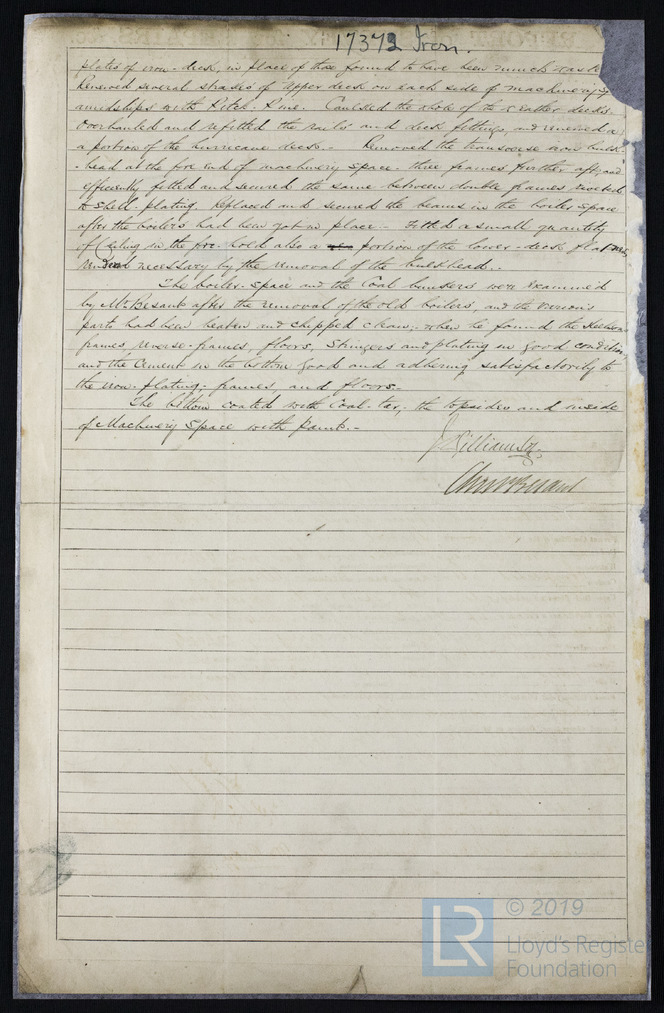 17372 Iron.
plates of iron-deck, in place of those found to have been much
Renewed several strakes of upper deck on each side of machinery
amidships with Pitch-Pine. Caulked the whole of the weather decks.
Overhauled and refitted the rails and deck fittings, and renewed
a portion of the hurricane deck.- Removed the transverse iron bulk-
-head at the fore end of machinery space three frames further aft, and
efficiently fitted and secured the same between double frames riveted
to shell-plating. Replaced and secured the beams in the boiler space
after the boilers had been got in place.- Fitted a small quantity
of Ceiling in the fore-hold also a portion of the lower-deck flat
rendered necessary by the removal of the bulkhead..
The boiler-space and the Coal bunkers were examined
by Mr Besant after the removal of the old boilers, and the various
parts had been beaten and chipped clean; when he found the
frames reverse-frames, floors, Stringers and plating in good condition,
and the Cement in the bottom good and adhering satisfactorily to
the iron-plating; frames, and floors.-
The bottom coated with Coal-tar; the topsides and inside
of Machinery Space with paint.-
J Williamson.
Besant
LR
© 2019
Lloyd's Register
Foundation